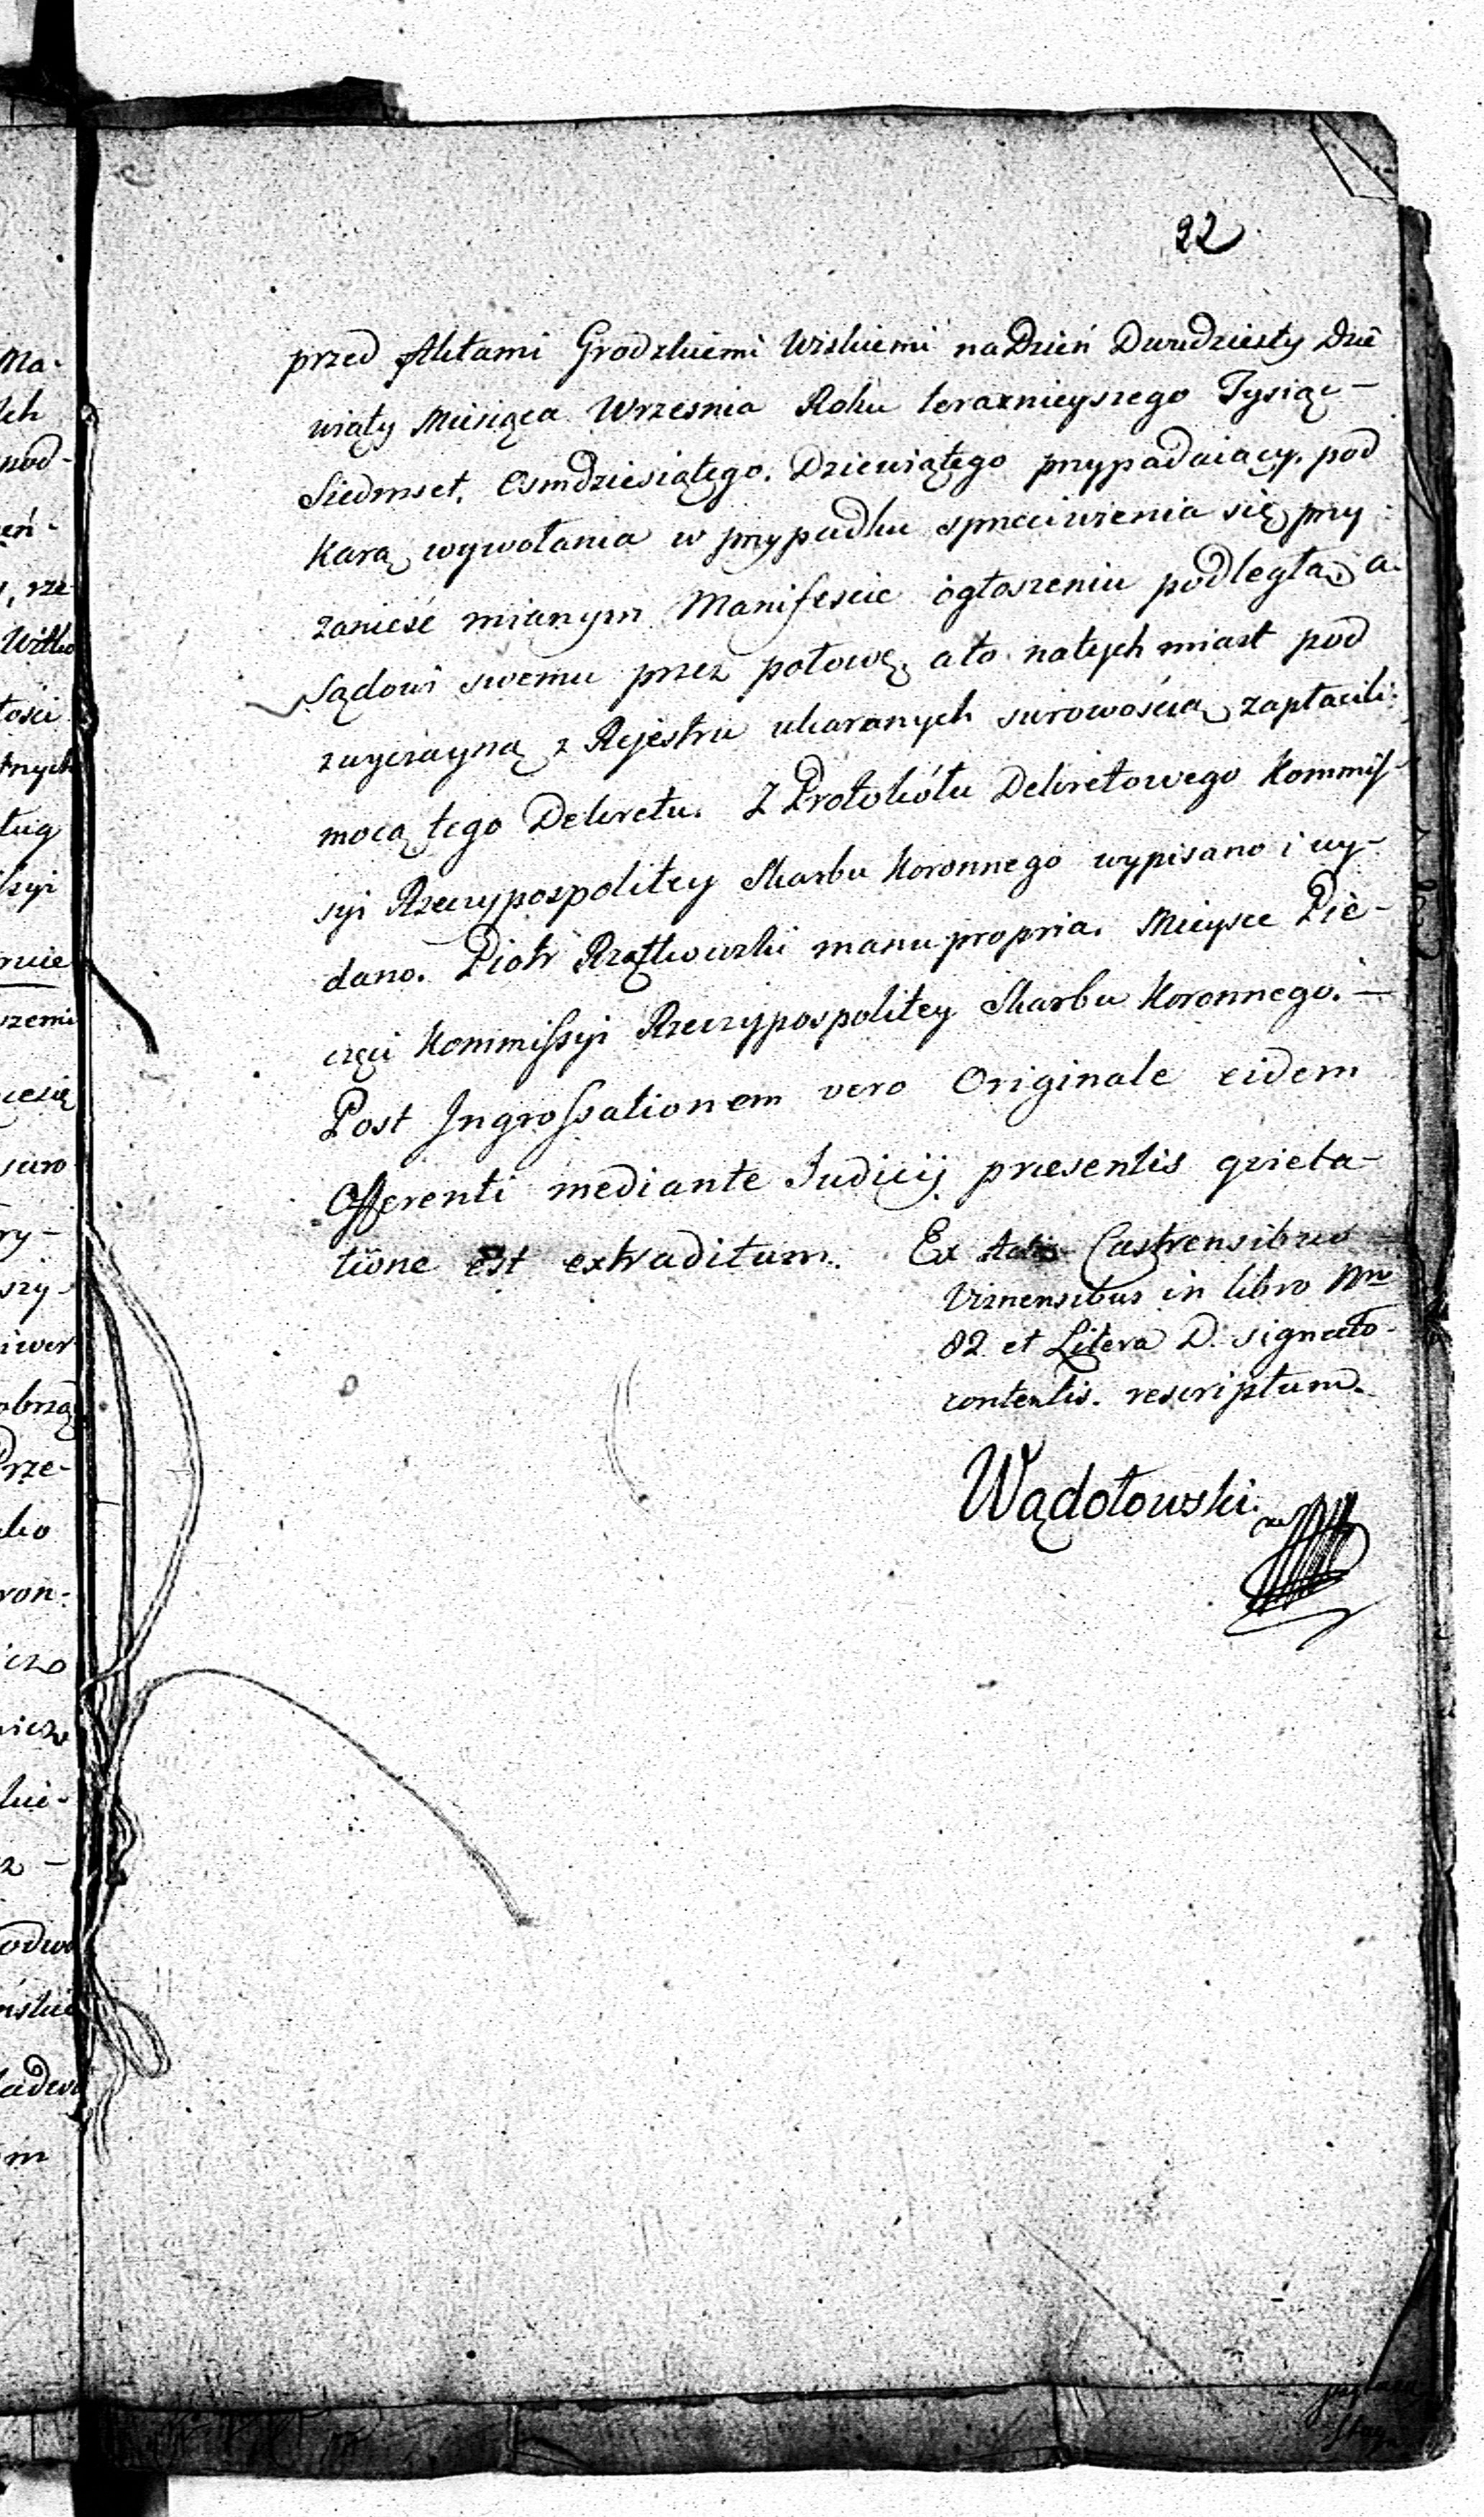 22
przed Aktami Grodzkiemi Wiskiemi na Dzień Dwudziesty Dzie
wiąty Miesiąca Wrzesnia Roku teraznieyszego Tysiąc-
Siedmset. Osmdziesiątego. Dziewiątego przypadaiący. pod
karą wywołania w przypadku sprzeciwienia się przy
zanieść mianym Manifescie ogłoszeniu podległą, a.
Sądowi swemu przez połowę, a to natych miast pod
zwyczayną z Rejestru ukaranych surowością zapłacili
mocą tego Dekretu. Z Protokółu Dekretowego Kommis-
syi Rzeczypospolitey Skarbu Koronnego wypisano i wy-
dano. Piotr manu propria. Mieysce Pie-
częci Kommissyi Rzeczypospolitey Skarbu Koronnego. —
Post Ingrossationem vero Originale eidem
Offerenti mediante Judicij præsentis qvieta-
tione est extraditum. Ex Actis Castrensibus
Viznensibus in libro Nro
82 et Litera D. signato
contentis. rescriptum.
Wądołowski
Ma-
nod-
eń-
rze-
tości
tnych
ług
szyi
nie
rzemi
suro-
ry-
szy-
iwer
obrzą
Prze-
ko
ron-
icz
kie-
z —
m